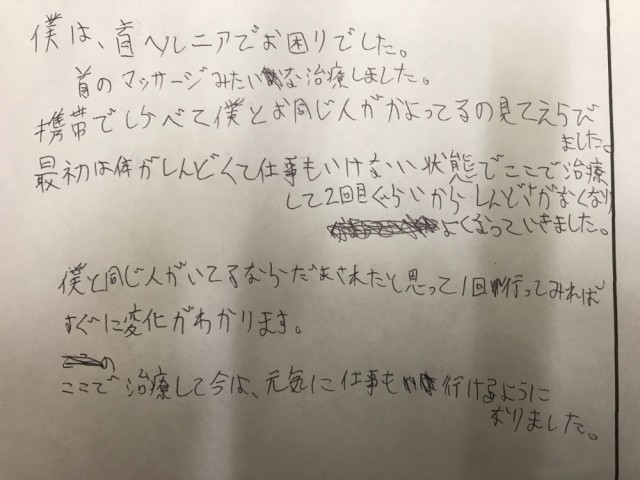 僕は、首ヘルニアでお困りでした。
首のマッサージみたいな治療しました。
携帯でしらべて僕とお同じ人がかよってるの見てえらび
ました。
最初は体がしんどくて仕事もいけない状態でここで治療
して2回目ぐらいからしんどさがなくなり
よくなっていきました。
僕と同じ人がいてるならだまされたと思って1回行ってみれば
すぐに変化がわかります。
ここで治療して今は、元気に仕事も行けるように
なりました。